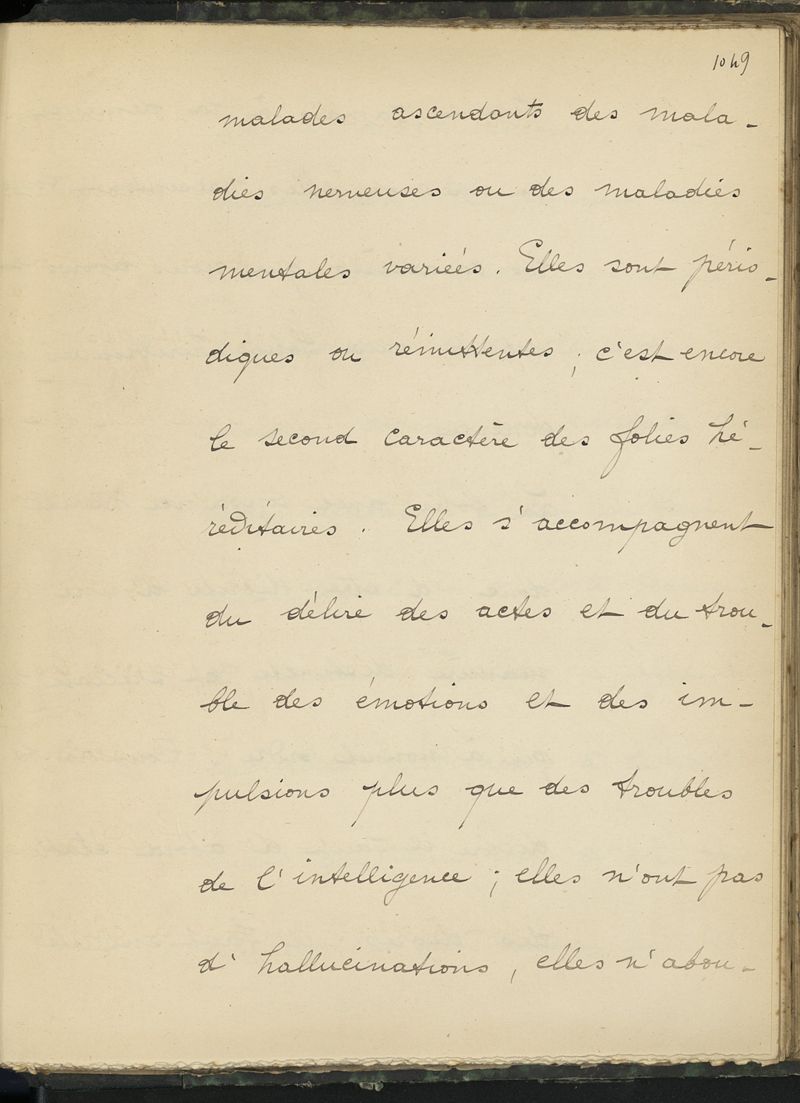 1049
malades ascendants des mala-
dies nerveuses ou des maladies
mentales variées. Elles sont pério-
diques ou rémittentes ; c'est encore
le second caractère des folies hé-
réditaires. Elles s'accompagnent
du délire des actes et du trou-
ble des émotions et des im-
pulsions plus que des troubles
de l'intelligence ; elles n'ont pas
d'hallucinations, elles n'abou-